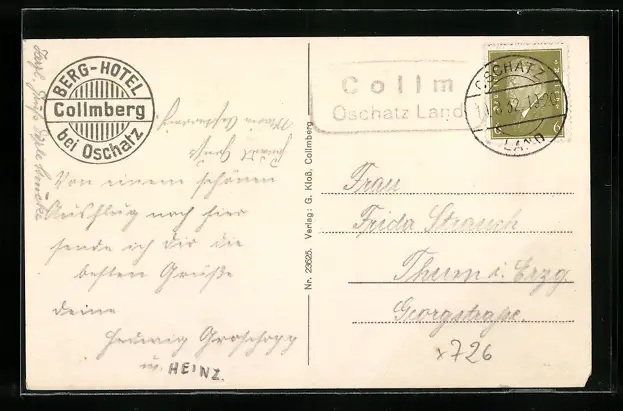 BERG-HOTEL
Collmberg
bei Oschatz
Von einem schönen
Ausflug nach hier
sende ich dir die
besten Grüße
deine
Hedwig Groschopp
u. HEINZ.
Nr. 23625. Verlag: G. Kloß, Collmberg
Collm
Oschatz Land
OSCHATZ
LAND
6
Frau
Frida Strauch
Thum i. Erzg
Georgstraße.
x726